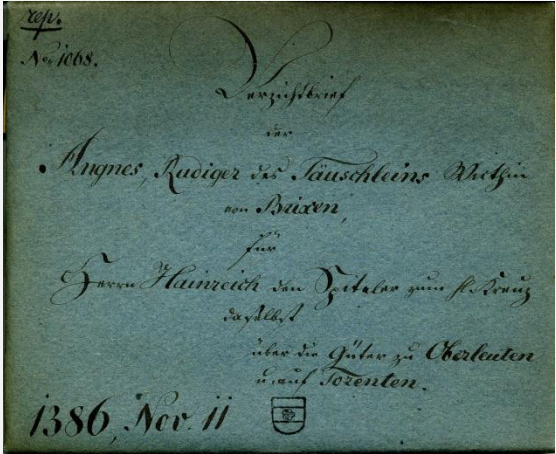 rep.
No. 1068.
Verzichtbrief
der
Angnes, Rudiger des Täuschleins Wirthin
von Brixen,
für
Herrn Hainreich den Spitaler zum hl. Kreuz
daselbst
über die Güter zu Oberleuten
u. auf Torenten.
1386, Nov. 11